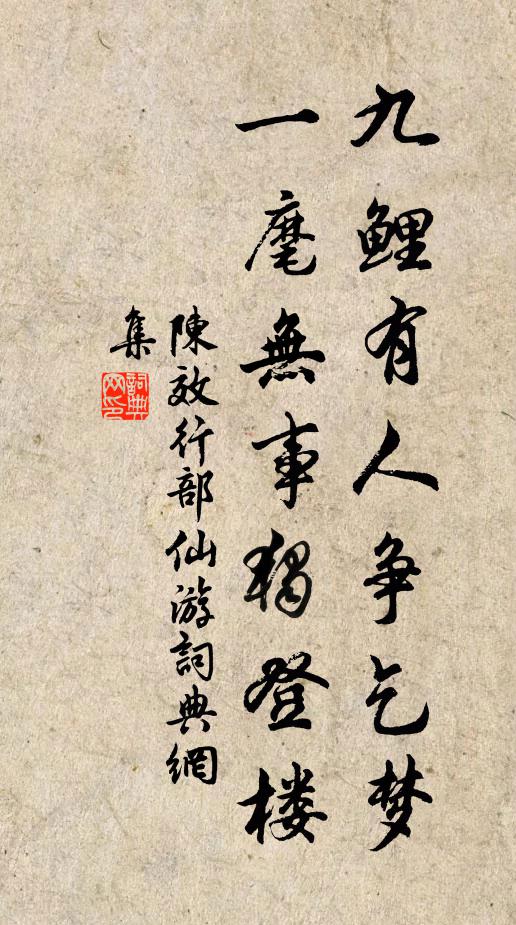 九鲤有人争乞梦
一麾無事独登楼
陳效行部仙游詞典網
集
詞典网印